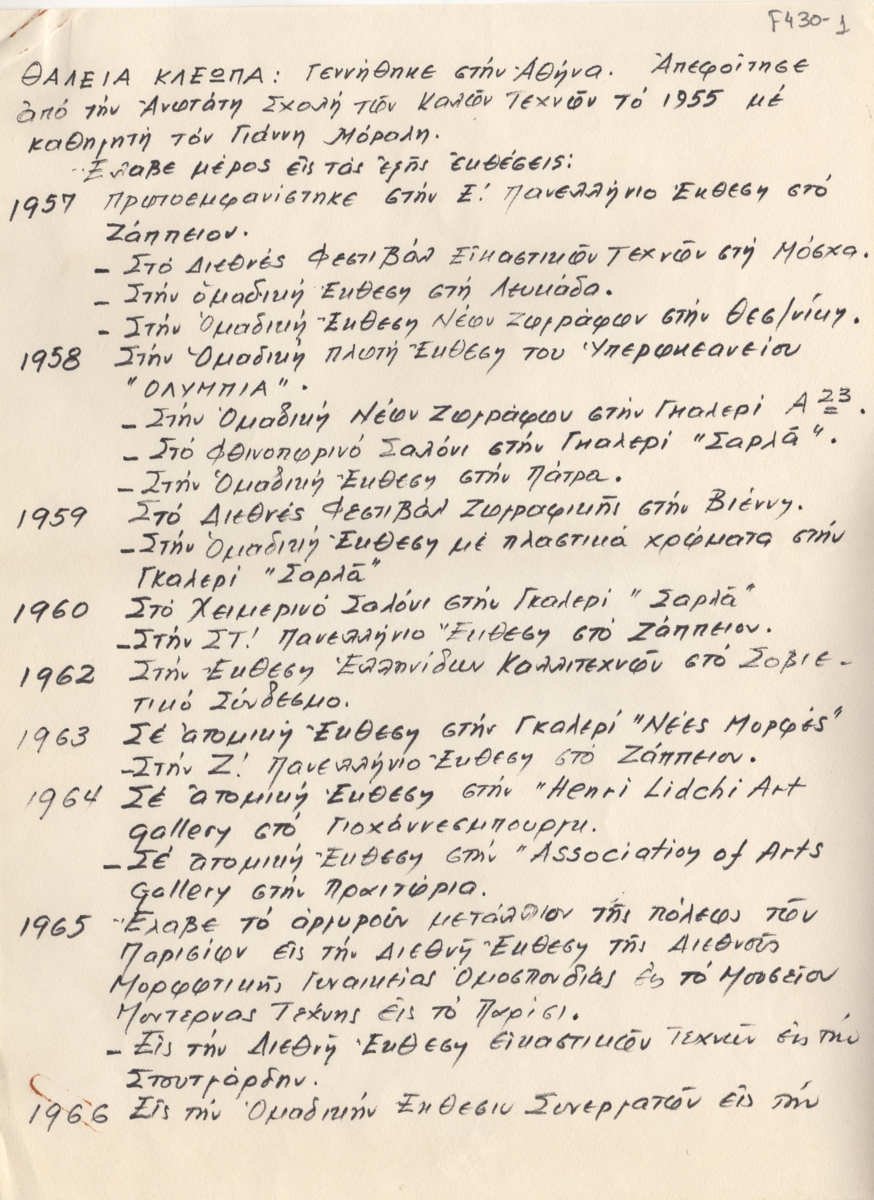 F430-1
ΘΑΛΕΙΑ ΚΛΕΩΠΑ: Γεννήθηκε στήν Ἀθήνα. Ἀπεφοίτησε
ἀπό τήν Ἀνωτάτη Σχολή τῶν Καλῶν Τεχνῶν τό 1955 μέ
καθηγητή τόν Γιάννη Μόραλη.
Ἔλαβε μέρος εἰς τάς ἑξῆς ἐκθέσεις:
1957 Πρωτοεμφανίστηκε στήν Ε! Πανελλήνιο Ἔκθεση στό
Ζάππειον.
- Στό Διεθνές Φεστιβάλ Εἰκαστικῶν Τεχνῶν στή Μόσχα.
- Στήν ὁμαδική Ἔκθεση στή Λευκάδα.
- Στήν Ὁμαδική Ἔκθεση Νέων Ζωγράφων στήν Θεσ/νίκη.
1958 Στήν Ὁμαδική πλωτή Ἔκθεση του Ὑπερωκεανείου
"ΟΛΥΜΠΙΑ".
- Στήν Ὁμαδική Νέων Ζωγράφων στήν Γκαλερί Α 23.
- Στό Φθινοπωρινό Σαλόνι στήν Γκαλερί "Σαρλᾶ".
- Στήν Ὁμαδική Ἔκθεση στήν Πάτρα.
1959 Στό Διεθνές Φεστιβάλ Ζωγραφικῆς στήν Βιέννη.
- Στήν Ὁμαδική Ἔκθεση μέ πλαστικά χρώματα στήν
Γκαλερί "Σαρλᾶ"
1960 Στό Χειμερινό Σαλόνι στήν Γκαλερί "Σαρλᾶ"
- Στήν ΣΤ! Πανελλήνιο Ἔκθεση στό Ζάππειον.
1962 Στήν Ἔκθεση Ἑλληνίδων Καλλιτεχνῶν στό Σοβιε-
τικό Σύνδεσμο.
1963 Σέ ἀτομική Ἔκθεση στήν Γκαλερί "Νέες Μορφές"
- Στήν Ζ! Πανελλήνιο Ἔκθεση στό Ζάππειον.
1964 Σέ ἀτομική Ἔκθεση στήν "Henri Lidchi Art
gallery στό Γιοχάννεσμπουργκ.
- Σέ ἀτομική Ἔκθεση στήν "Association of Arts
Gallery στήν Πραιτώρια.
1965 Ἔλαβε τό ἀργυροῦν μετάλλιον τῆς πόλεως τῶν
Παρισίων εἰς τήν Διεθνῆ Ἔκθεση τῆς Διεθνοῦς
Μορφωτικῆς Γυναικείας Ὁμοσπονδίας εἰς τό Μουσεῖον
Μοντέρνας Τέχνης εἰς τό Παρίσι.
- Εἰς τήν Διεθνῆ Ἔκθεση εἰκαστικῶν Τεχνῶν εἰς τήν
Στουτγάρδην.
1966 Εἰς τήν Ὁμαδικήν Ἔκθεσιν Συνεργατῶν εἰς τήν